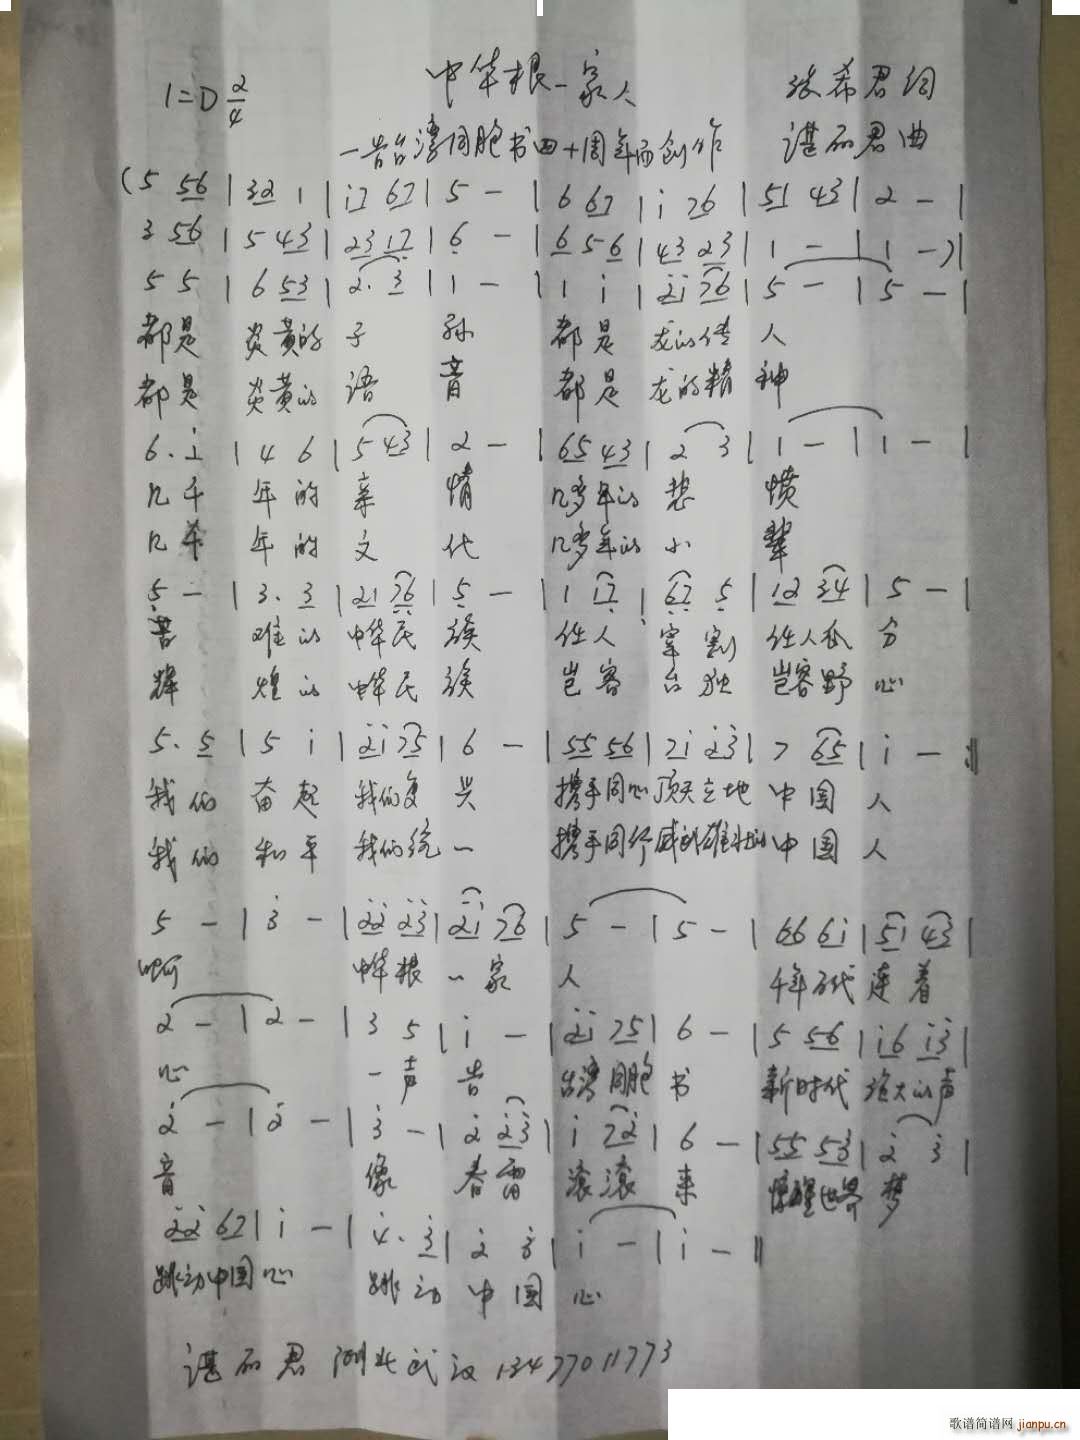 中华根一家人
1=D 2/4
张希君词
一告台湾同胞书四十周年而创作
谌丽君曲
(5 56 | 32 1 | i7 67 | 5 - | 6 67 | i 76 | 51 43 | 2 - |
3 56 | 5 43 | 23 17 | 6 - | 6 5 6 | 43 23 | 1 - | 1 -)|
5 5 | 6 53 | 2. 3 | 1 - | 1 i | 2i 76 | 5 - | 5 - |
都是 炎黄的 子 孙 都是 龙的传 人
都是 炎黄的 语 音 都是 龙的精 神
6. i | 4 6 | 5 43 | 2 - | 65 43 | 2 3 | 1 - | 1 - |
几千 年的 亲 情 几多年的 悲 愤
几千 年的 文 化 几多年的
5 - | 3. 3 | 21 76 | 5 - | 1 17 | 67 5 | 12 34 | 5 - |
苦 难的 中华民 族 任人 宰割 任人瓜 分
辉 煌的 中华民 族 岂容 台独 岂容野 心
5. 5 | 5 i | 2i 75 | 6 - | 55 56 | 7i 23 | 7 65 | i - :‖
我们 奋起 我们复 兴 携手同心 顶天立地 中国 人
我们 和平 我们统 一 携手同行 威武雄壮的 中国 人
5 - | 3 - | 22 23 | 2i 76 | 5 - | 5 - | 66 6i | 5i 43 |
啊 中华根 一家 人 千年万代 连着
2 - | 2 - | 3 5 | i - | 2i 75 | 6 - | 5 56 | i6 i3 |
心 一声 告 台湾同胞 书 新时代 强大的声
2 - | 2 - | 3 - | 2 23 | i 72 | 6 - | 55 53 | 2 3 |
音 像 春雷 滚滚 来 惊醒世界 梦
22 67 | i - | 4. 3 | 2 3 | i - | i - ‖
跳动中国 心 跳动 中国 心
谌丽君 湖北武汉 13477011773
歌谱简谱网 jianpu.cn